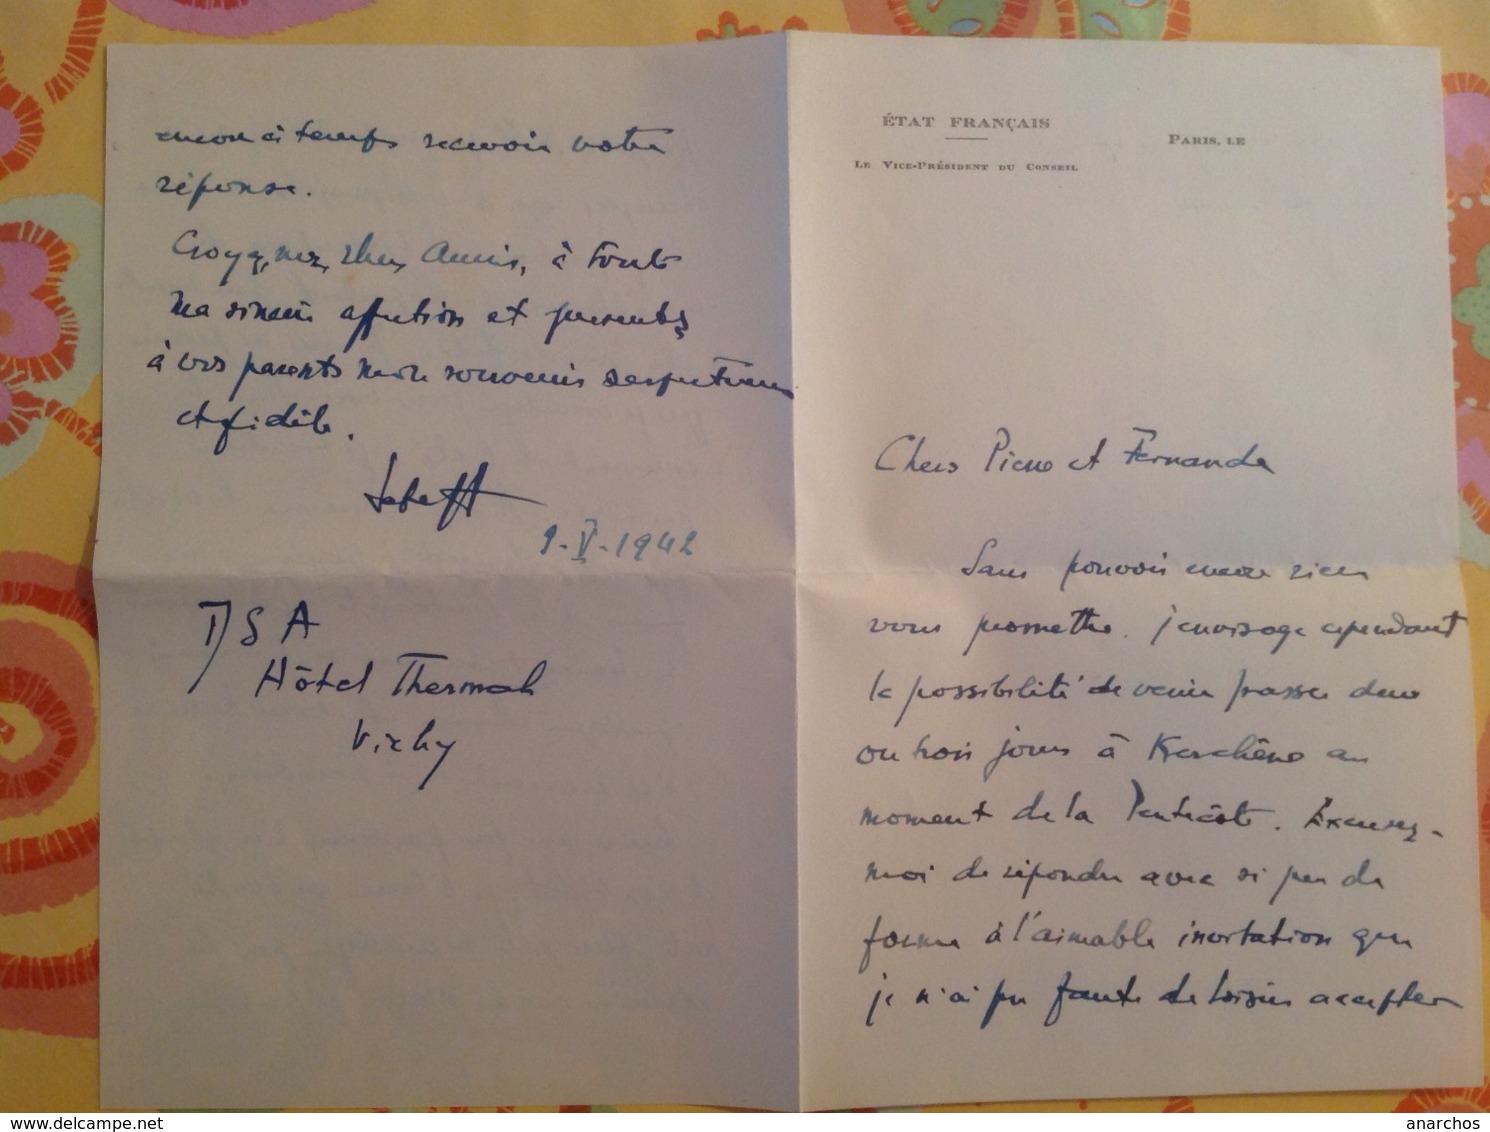 ÉTAT FRANÇAIS
LE VICE-PRÉSIDENT DU CONSEIL
PARIS, LE
Chers Pierre et Fernande
Sans pouvoir encore rien
vous promettre, j'envisage cependant
la possibilité de venir passer deux
ou trois jours à au
moment de la Pentecôte. Excusez-
moi de répondre avec si peu de
forme à l'aimable invitation que
je n'ai pu faute de loisirs accepter
encore à temps recevoir votre
réponse.
Croyez, mes chers Amis, à toute
ma sincère affection et présentez
à vos parents mon souvenir respectueux
et fidèle.
9-V-1942
DSA
Hôtel Thermal
Vichy
delcampe.net
anarchos